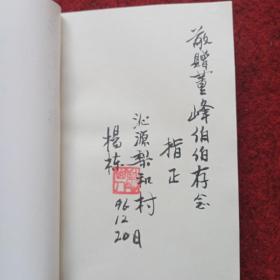 敬赠董峰伯伯存念
指正
沁源梨和村
杨栋
96
12
20日